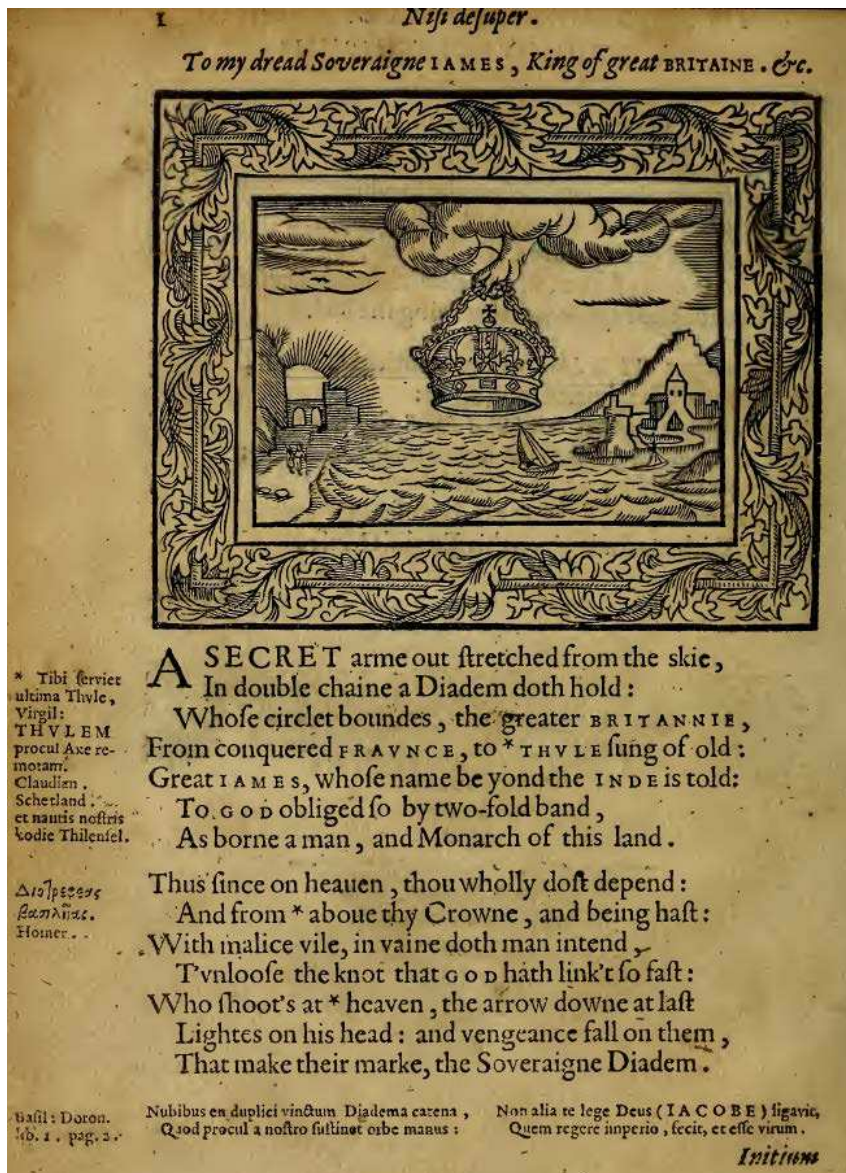 1
Niſi deſuper.
To my dread Soveraigne IAMES, King of great BRITAINE. &c.
A SECRET arme out ſtretched from the skie,
In double chaine a Diadem doth hold:
Whoſe circlet boundes, the greater BRITANNIE,
From conquered FRAVNCE, to *THVLE ſung of old:
Great IAMES, whoſe name beyond the INDE is told:
To GOD obliged ſo by two-fold band,
As borne a man, and Monarch of this land.
Thus ſince on heauen, thou wholly doſt depend:
And from * aboue thy Crowne, and being haſt:
With malice vile, in vaine doth man intend,
T'vnlooſe the knot that GOD hath link't ſo faſt:
Who ſhoot's at * heaven, the arrow downe at laſt
Lightes on his head: and vengeance fall on them,
That make their marke, the Soveraigne Diadem.
* Tibi ſerviet
ultima Thvle,
Virgil:
THVLEM
procul Axe re-
motam.
Claudian.
Schetland.
et nautis noſtris
hodie Thilenſel.
Homer.
Baſil: Doron.
lib. 1. pag. 2.
Nubibus en duplici vinctum Diadema catena,
Quod procul a noſtro ſuſtinet orbe manus:
Non alia te lege Deus (IACOBE) ligavit,
Quem regere imperio, fecit, et eſſe virum.
Initium